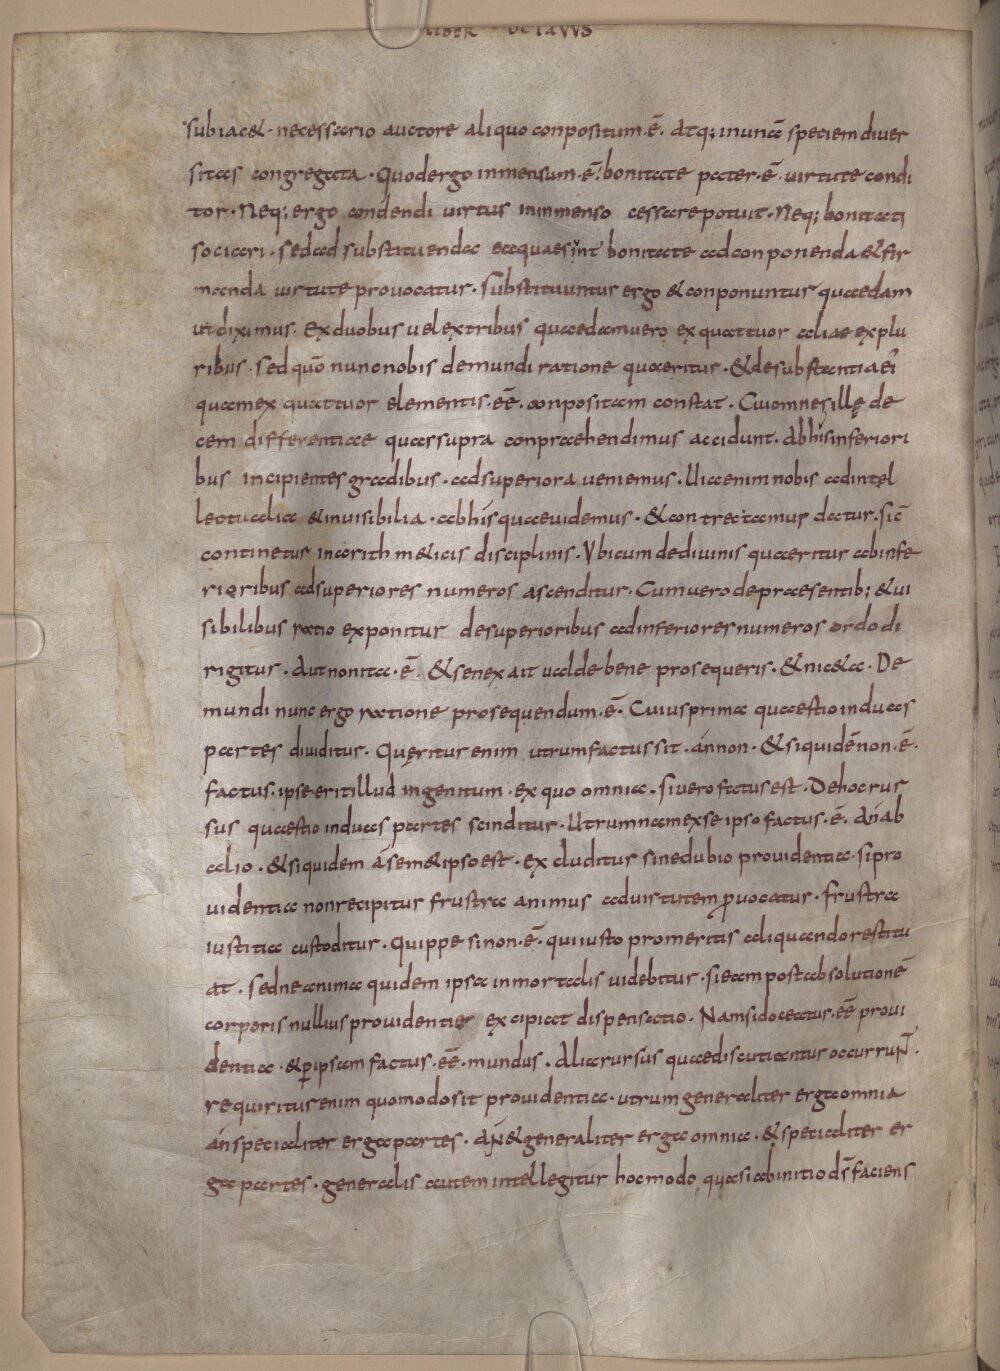 LIBER OCTAVVS
subiac&· necessario auctore aliquo conpositum·ē· Atq; inunā speciem diver
sitas congregata· Quodergo inmensum·ē· bonitate pater·ē· uirtute condi
tor· Neq; ergo condendi uirtus ininmenso cessare potuit· Neq; bonitati
sociari· sedad substituenda eaquaesint bonitate adconponenda &fir
manda uirtute prouocatur· substituuntur ergo &conponuntur quaedam
utdiximus· Exduobus uelextribus quaedamuero exquattuor aliae explu
ribus· sed quō nuncnobis demundi ratione quaeritur· &desubstantia ei
quamex quattuor elementis·eē· conpositam constat· Cuiomnes illę de
cem differentiae quassupra conpraehendimus accidunt· Abhisinferiori
bus incipientes gradibus· adsuperiora ueniemus· Uiaenimnobis adintel
lectualia &inuisibilia· abhis quaeuidemus· &contrectamus datur· sić
continetur inarithm&icis disciplinis· Vbicum dediuinis quaeritur abinfe
rioribus adsuperiores numeros ascenditur· Cumuero depraesentib; &ui
sibilibus ratio exponitur desuperioribus adinferiores numeros ordo di
rigitur· Aut nonita·ē· &senex ait ualde bene prosequeris· &nic&a· De
mundi nunc ergo ratione prosequendum·ē· Cuiusprima quaestio induas
partes diuiditur· Quęritur enim utrum factus sit· ánnon· &siquidē non·ē·
factus· ipse eritillud ingenitum· ex quo omnia· siuero factus est· Dehoc rur
sus quaestio induas partes scinditur· Utrumnamexse ipso factus·ē· Ań ab
alio· &siquidem ásem&ipso est· excluditur sinedubio prouidentia· si pro
uidentia nonrecipitur frustra animus aduirtutem ꝓuocatur· frustra
iustitia custoditur· Quippe sinon·ē· quiiusto promeritis aliquando restitu
at· sedneanima quidem ipsa inmortalis uidebitur· sieam postabsolutionē
corporis nullius prouidentię excipiat dispensatio· Nam sidoceatur·eē proui
dentia· &ꝑipsam factus·eē·mundus· Alia rursus quaediscutiantur occurruNT·
requiritur enim quomodo sit prouidentia· utrum generaliter erga omnia
án specialiter erga partes· AN &generaliter erga omnia· &specialiter er
ga partes· generalis autem intellegitur hoc modo, quasi abinitio ds̄ faciens